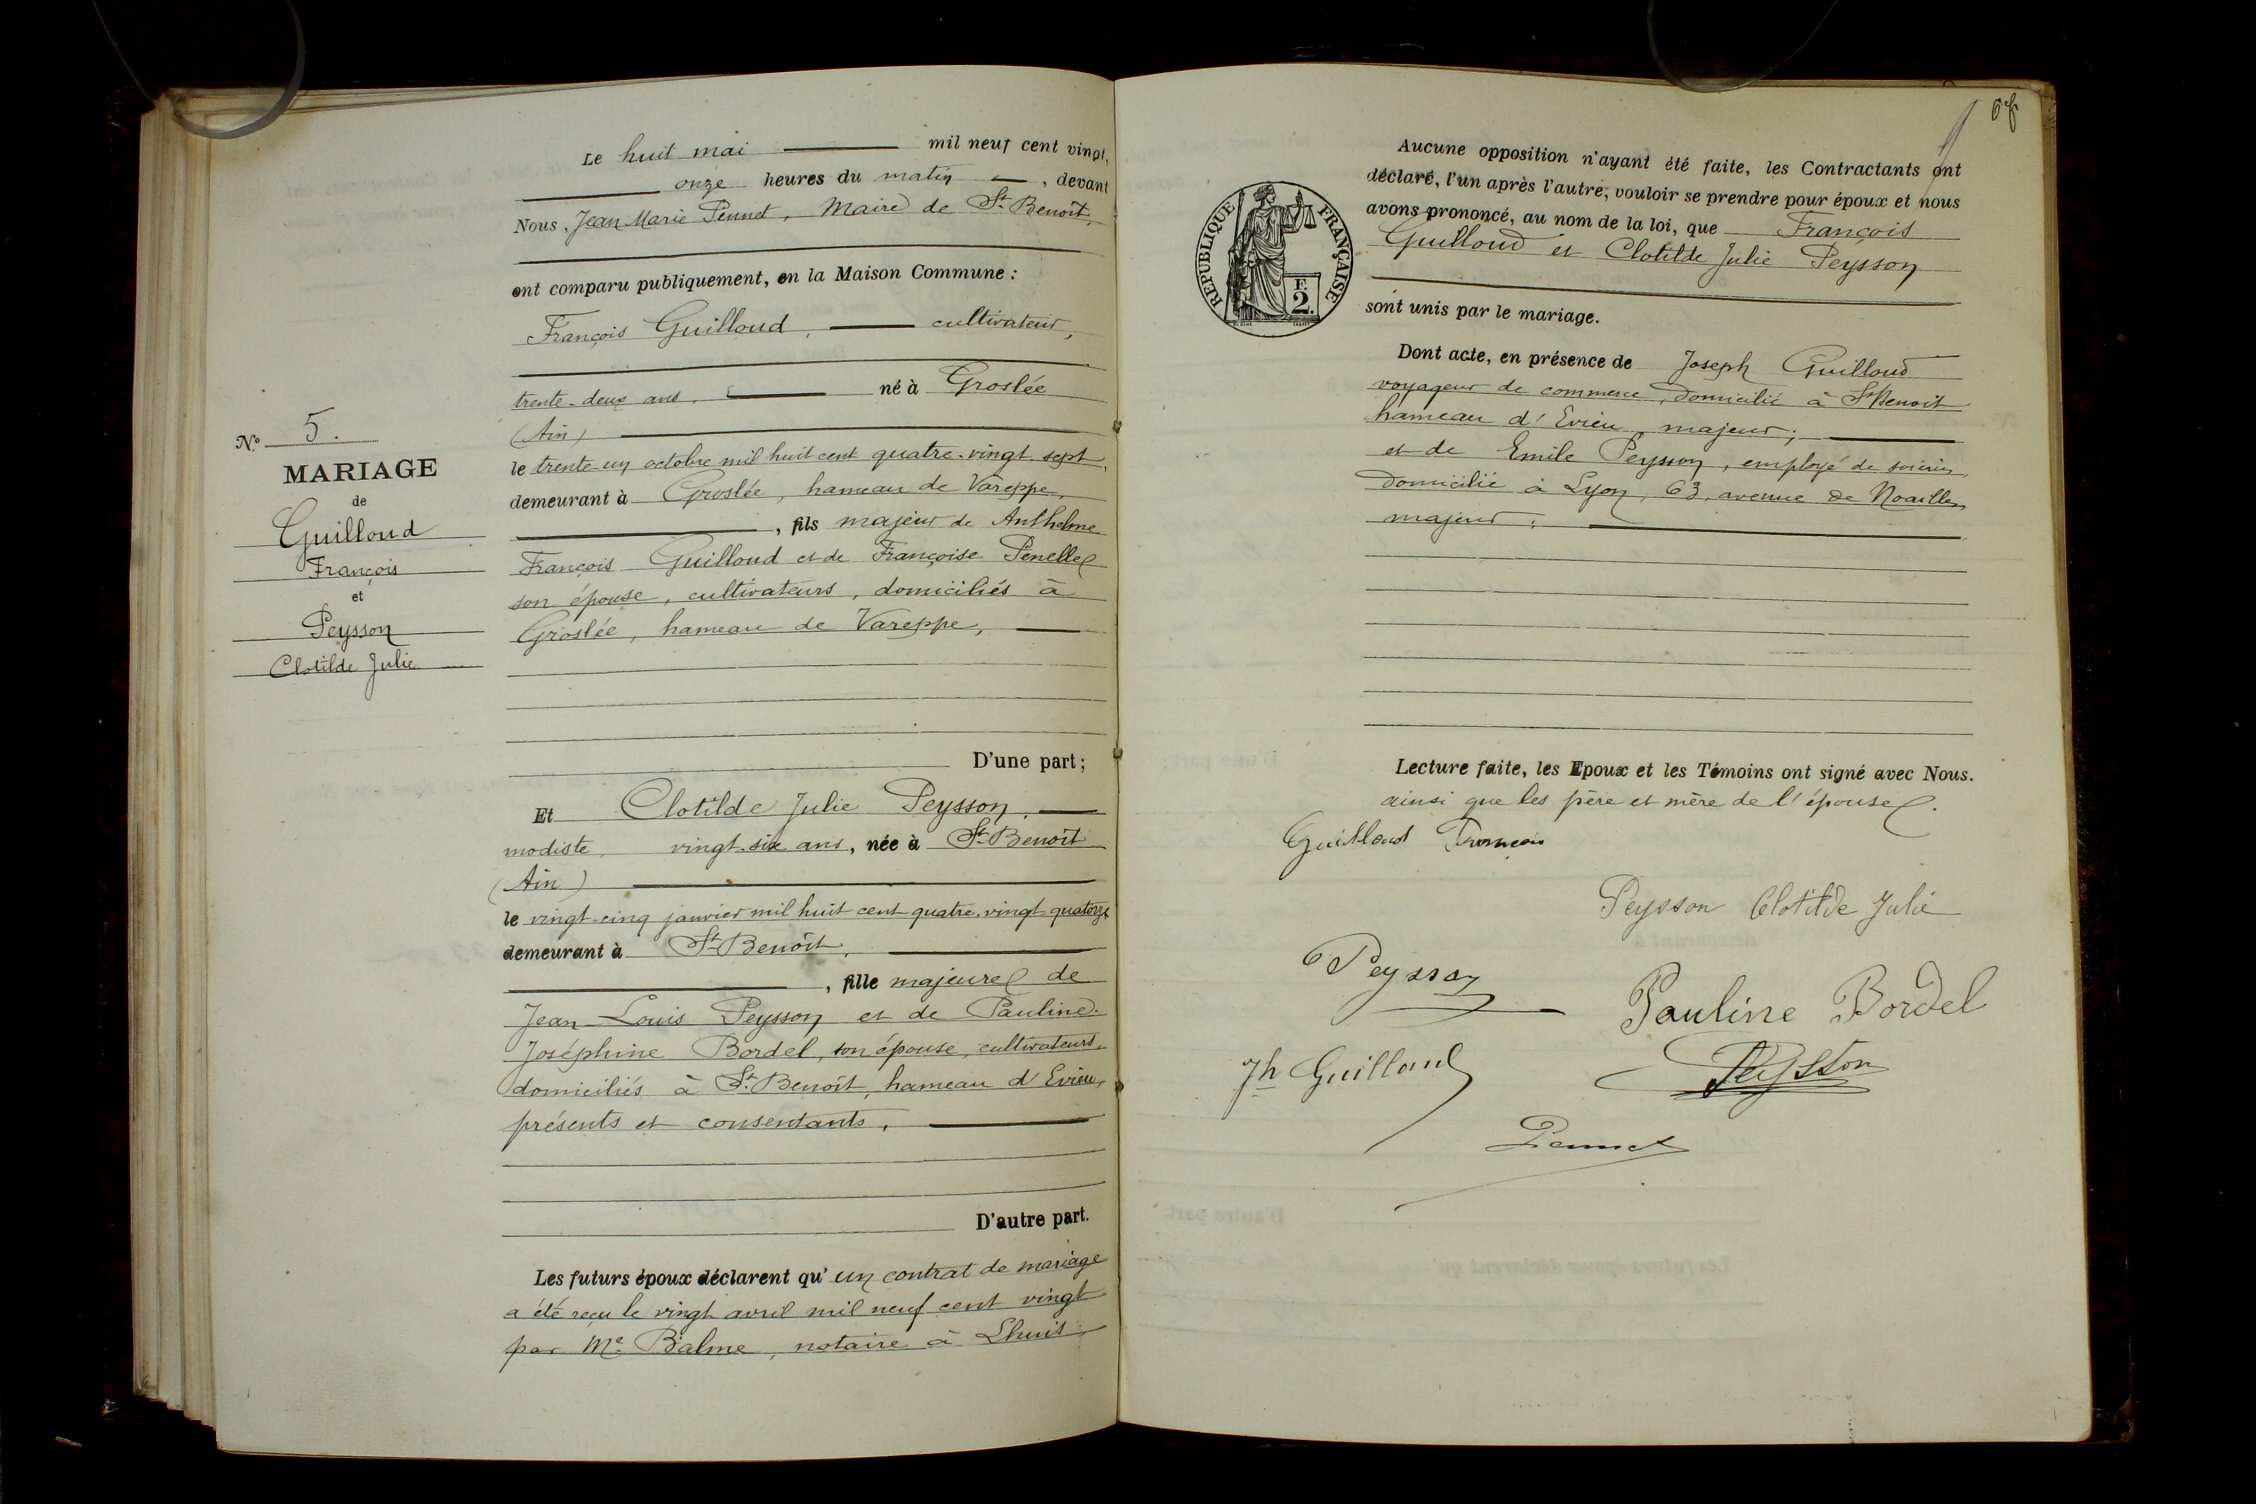 Le huit mai mil neuf cent vingt,
onze heures du matin, devant
Nous, Jean Marie Pennet, Maire de St. Benoît,
ont comparu publiquement, en la Maison Commune :
François Guilloud, cultivateur,
trente-deux ans, né à Groslée
(Ain)
le trente-un octobre mil huit cent quatre-vingt-sept,
demeurant à Groslée, hameau de Vareppe,
, fils majeur de Anthelme
François Guilloud et de Françoise Penelle
son épouse, cultivateurs, domiciliés à
Groslée, hameau de Vareppe,
D'une part ;
N° 5.
MARIAGE
de
Guilloud
François
et
Peysson
Clotilde Julie
Et Clotilde Julie Peysson,
modiste, vingt-six ans, née à St. Benoît
(Ain)
le vingt-cinq janvier mil huit cent quatre-vingt-quatorze
demeurant à St. Benoît,
, fille majeure de
Jean-Louis Peysson et de Pauline
Joséphine Bordel, son épouse, cultivateurs,
domiciliés à St. Benoît, hameau d'Evieu,
présents et consentants,
D'autre part.
Les futurs époux déclarent qu'un contrat de mariage
a été reçu le vingt avril mil neuf cent vingt
par Me Balme, notaire à Lhuis
RÉPUBLIQUE FRANÇAISE
F.
2.
Aucune opposition n'ayant été faite, les Contractants ont
déclaré, l'un après l'autre, vouloir se prendre pour époux et nous
avons prononcé, au nom de la loi, que François
Guilloud et Clotilde Julie Peysson
sont unis par le mariage.
Dont acte, en présence de Joseph Guilloud
voyageur de commerce, domicilié à St Benoît
hameau d'Evieu, majeur ;
et de Emile Peysson, employé de soierie,
domicilié à Lyon, 63, avenue de Noailles,
majeur ;
Lecture faite, les Epoux et les Témoins ont signé avec Nous.
ainsi que les père et mère de l'épouse.
Guilloud François
Peysson Clotilde Julie
Peysson
Pauline Bordel
Jh Guilloud
Peysson
Pennet